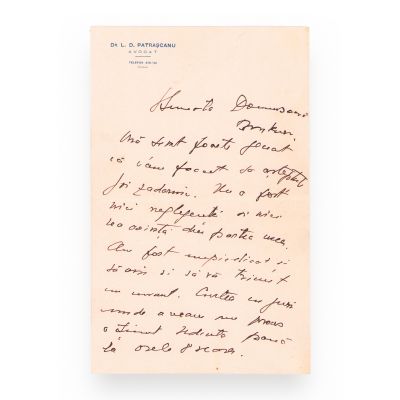 Dr L. D. PATRAȘCANU
AVOCAT
TELEFON
Stimate Domnule
Mă simt foarte jenat
că v'am făcut să așteptați
joi zadarnic. Nu a fost
nici neglijență și nici
rea voință din partea mea.
Am fost împiedicat și
să vin și să vă trimit
un cuvânt. Curtea cu juri
unde aveam un proces
a ținut ședință până
la orele 8 seara.